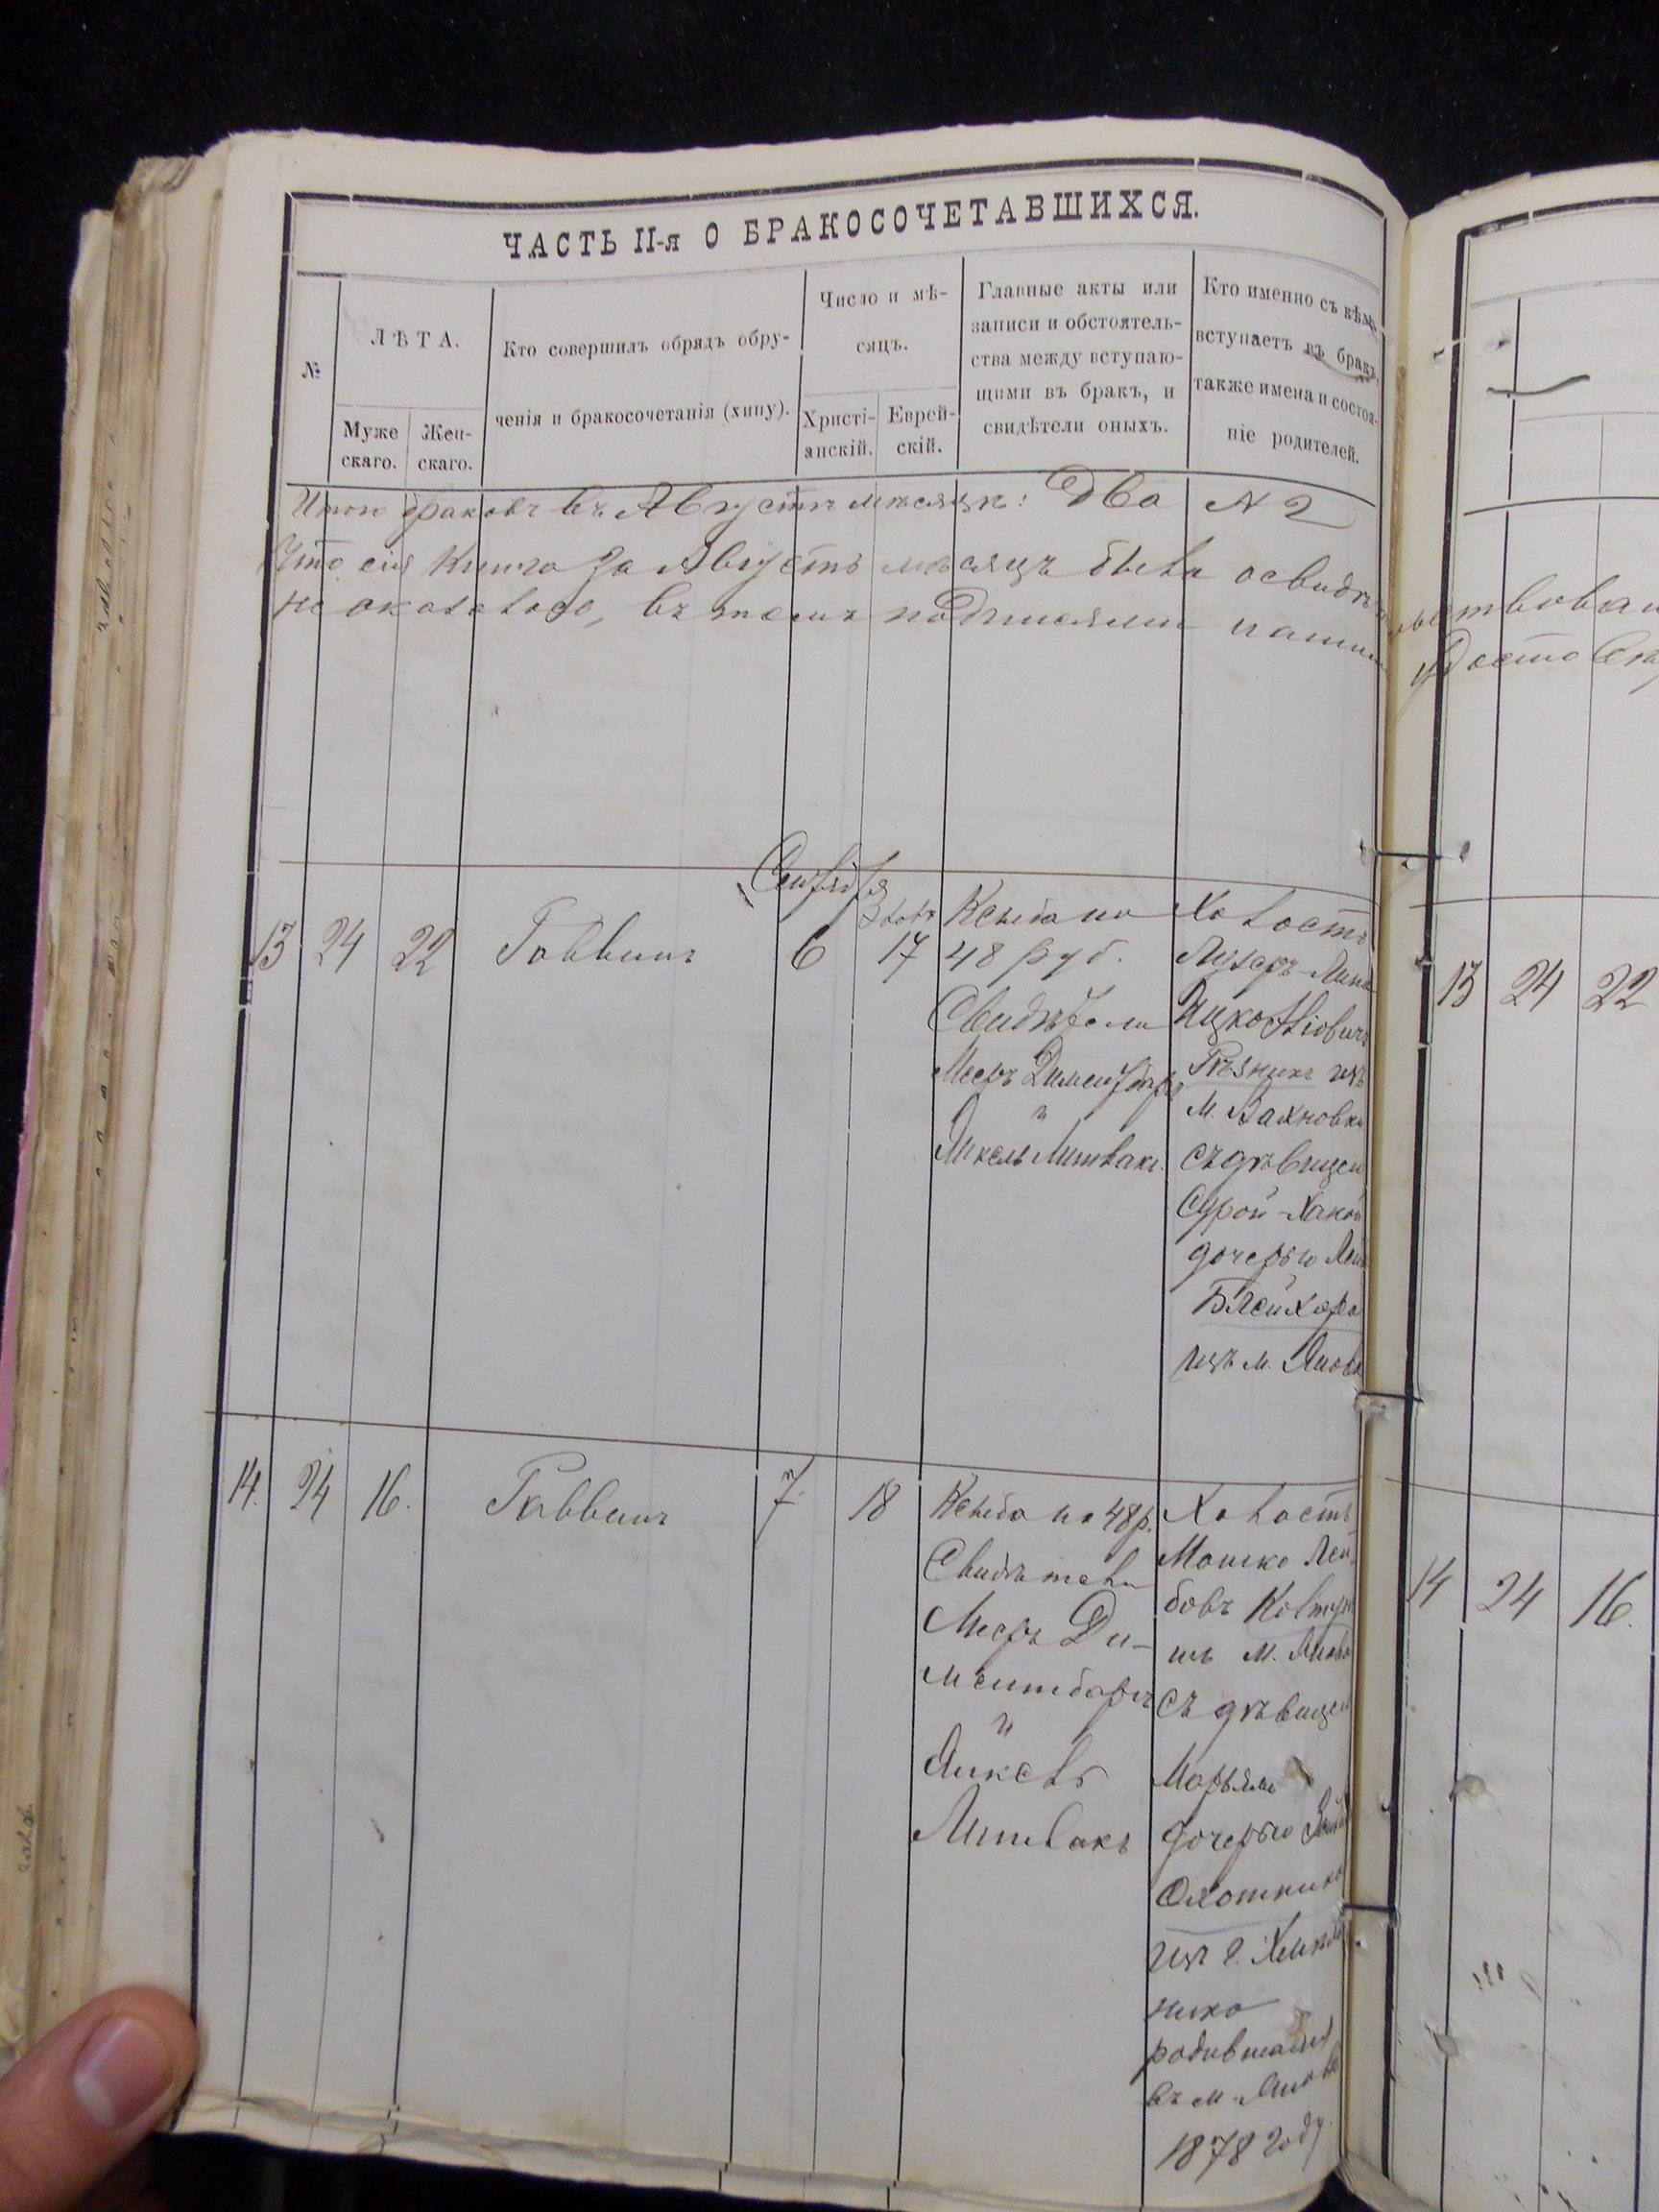 ЧАСТЬ II-я О БРАКОСОЧЕТАВШИХСЯ.
№
ЛѢТА.
Муже
скаго.
Жен-
скаго.
Кто совершилъ обрядъ обру-
ченія и бракосочетанія (хипу).
Число и мѣ-
сяцъ.
Христі-
анскій.
Еврей-
скій.
Главные акты или
записи и обстоятель-
ства между вступаю-
щими въ бракъ, и
свидѣтели оныхъ.
Кто именно съ кѣмъ
вступаетъ въ бракъ,
также имена и состоя-
ніе родителей.
Итого браковъ въ Августѣ мѣсяцѣ: Два № 2
Что сія книга за Августъ мѣсяцъ была освидѣ
не оказалось, въ томъ подписями нашими
Сентября
Элолъ
13 24 22 Раввинъ 6 17
Ксыба на
48 руб.
Свидѣтели
Мееръ Диментбаръ
и
Янкель Литвакъ.
Холостъ
Ицко
Рѣзникъ изъ
м. Вахновки
съ дѣвицей
Сурой-Ханой
дочерью
Блейхера
изъ м. Янова
14. 24 16. Раввинъ 7. 18
Ксыба на 48 р.
Свидѣтели
Мееръ Ди-
ментбаръ
и
Янкель
Литвакъ
Холостъ
Мошко Лей
бовъ Колтун
изъ м. Янова
съ дѣвицей
Марьям
дочерью
Охотника
изъ г. Хмѣль
ника
родившаяся
въ м. Янове
1878 году
13 24 22
14 24 16.